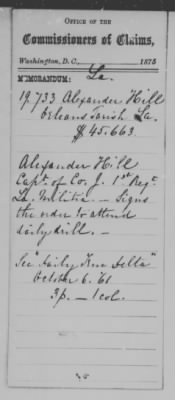 OFFICE OF THE
Commissioners of Claims,
Washington, D. C., 1875
MEMORANDUM: La.
19,733 Alexander Hill
Orleans Parish La.
$45.663.
Alexander Hill
Capt. of Co. J. 1st Reg.
La. Militia. — Signs
the order to attend
daily drill. —
See "Daily True Delta"
October 6. 61
3p. — 1 col.